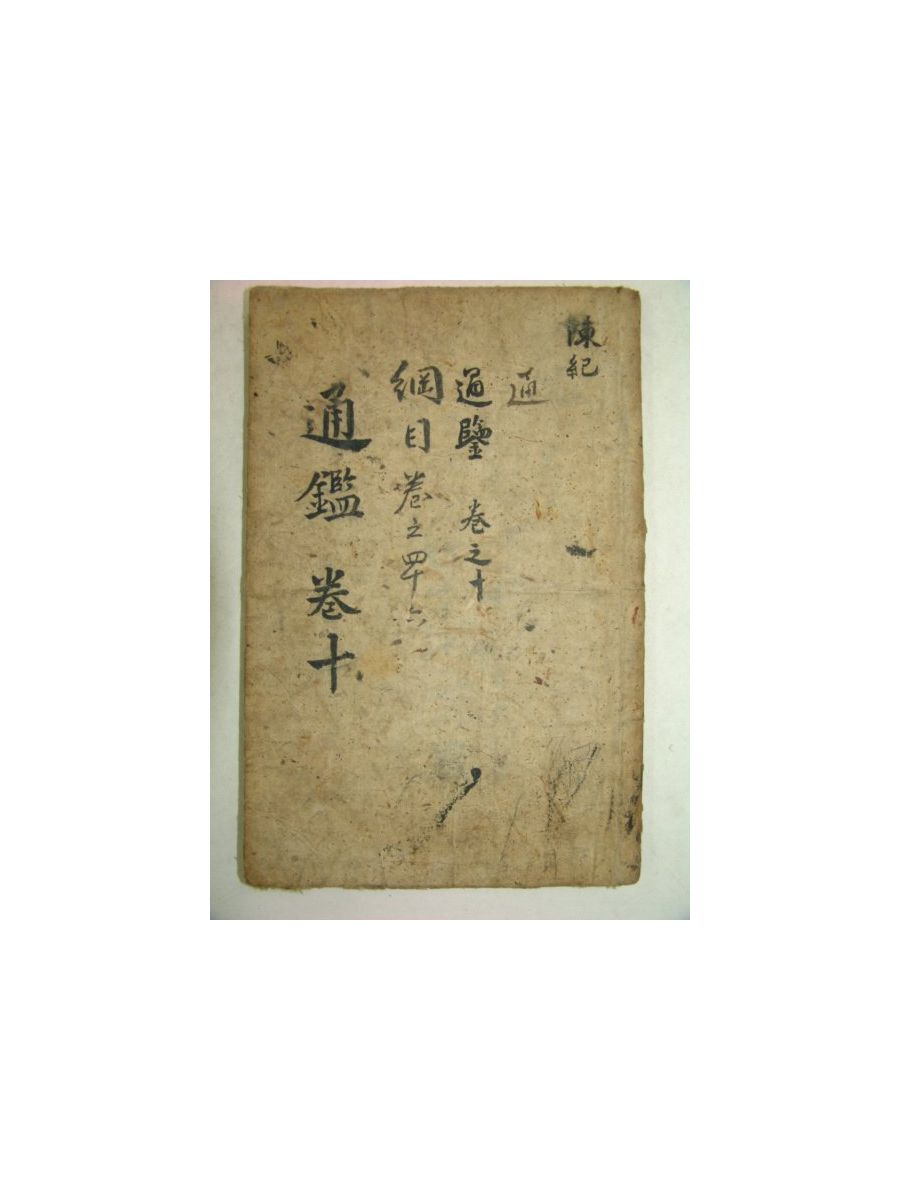 陳紀
通
通鑒 卷之十
綱目卷之四十六
通鑑 卷十